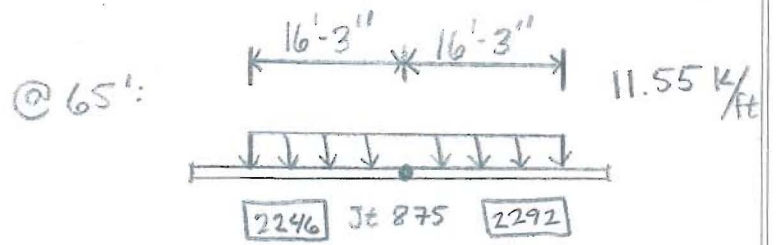 16'-3" 16'-3"
@ 65': 11.55 k/ft
2246 Jt 875 2292